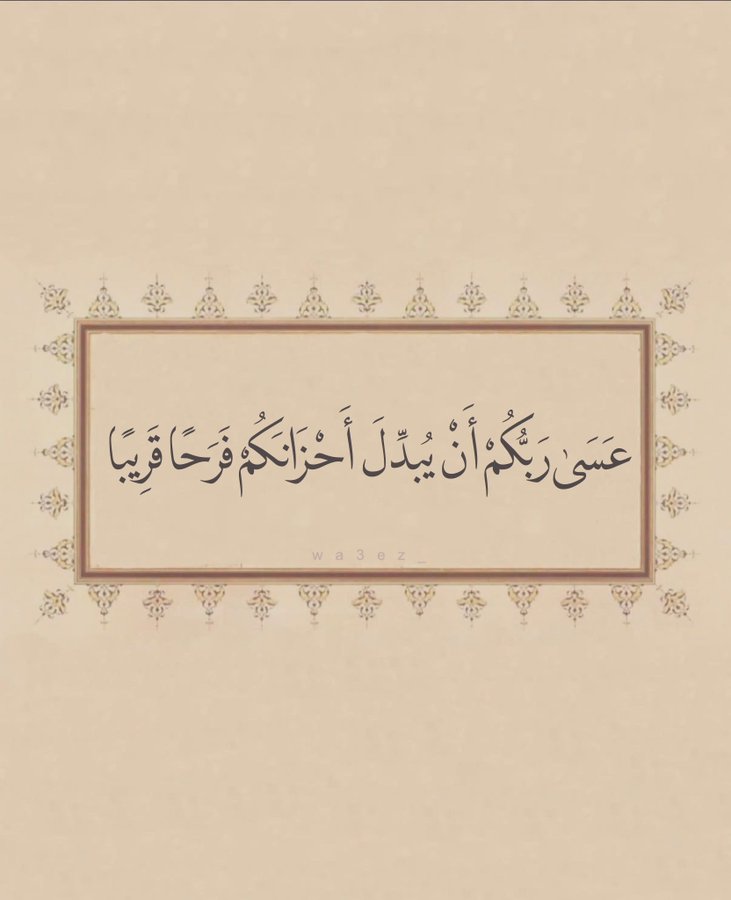 عَسَىٰ رَبُّكُمْ أَنْ يُبدِّلَ أَحْزَانَكُمْ فَرَحًا قَرِيبًا
wa3ez_